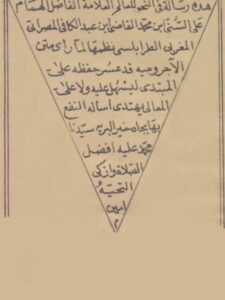 هذه رسالة في النحو للعالم العلامة الفاضل الهمام
علي السني ابن محمد القاضي ابن عبد الكافي المصراتي
المغربي الطرابلسي نظمها لما رأى متن
الآجروميه قد عسر حفظه على
المبتدى ليسهل عليه ولا على
المعالي يهتدى أساله النفع
بها بجاه خير البريه سيدنا
محمد عليه افضل
الصلاة وازكى
التحية
امين
م